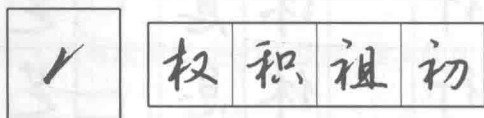 权积祖初